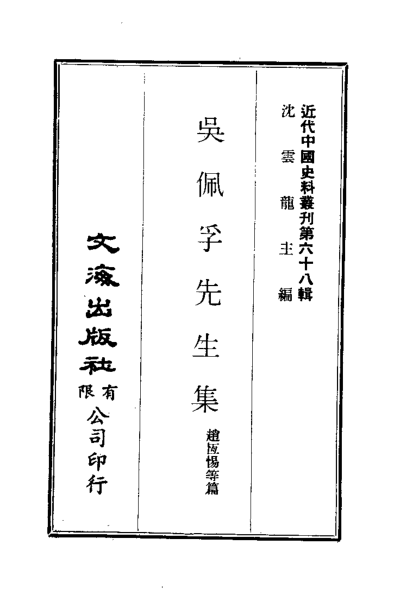 近代中國史料叢刊第六十八輯
沈雲龍主編
吳佩孚先生集
趙恆惕等篇
文海出版社
有限
公司印行